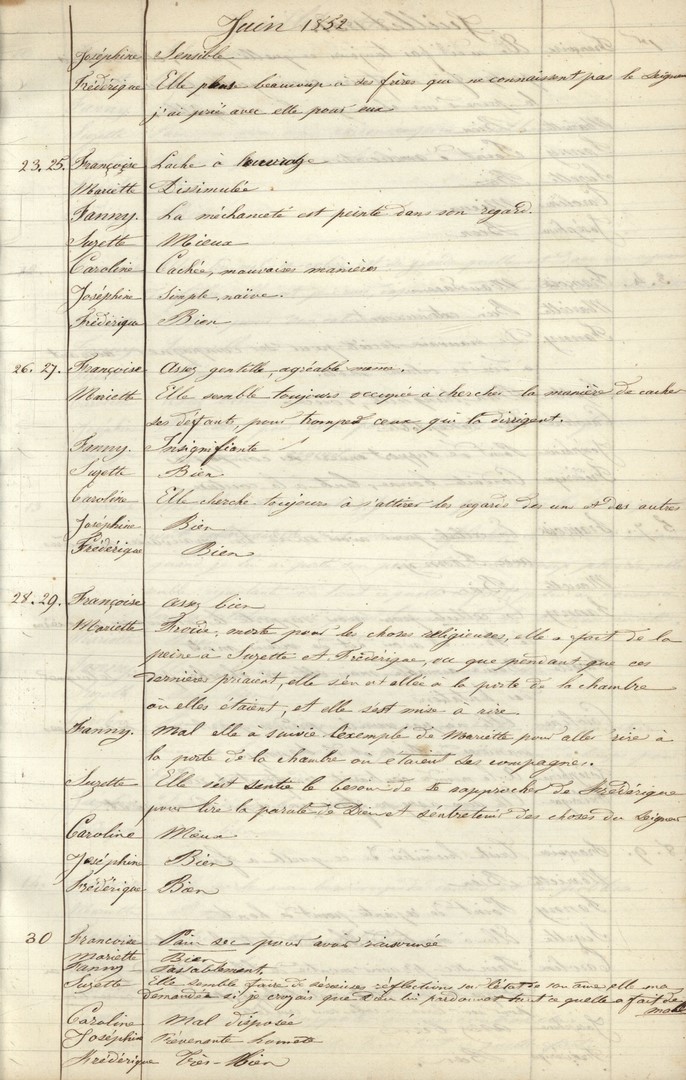 Juin 1852
Joséphine Sensible
Frédérique Elle pense beaucoup à ses frères qui ne connaissent pas le Seigneur
j'ai prié avec elle pour eux
23. 25. Françoise Lache à l'ouvrage
Mariette Dissimulée
Fanny. La méchanceté est peinte dans son regard.
Suzette Mieux
Caroline Cachée, mauvaises manières
Joséphine Simple, naïve.
Frédérique Bien
26. 27. Françoise Assez gentille, agréable meme.
Mariette Elle semble toujours occupée à chercher la manière de cacher
ses défauts, pour tromper ceux qui la dirrigent.
Fanny. Insignifiante
Suzette Bien
Caroline Elle cherche toujours à s'attirer les regards des un et des autres
Joséphine Bien
Frédérique Bien
28. 29. Françoise assez bien
Mariette Froide, morte pour les choses religieuses, elle a fait de la
peine a Suzette et Frédérique, vu que pendant que ces
dernières priaient, elle s'en est allée à la porte de la chambre
où elles étaient, et elle s'est mise à rire.
Fanny. Mal elle à suivie l'exemple de Mariette pour aller rire à
la porte de la chambre ou étaient ses compagnes.
Suzette Elle s'est sentie le besoin de se rapprocher de Frédérique
pour lire la parole de Dieu et s'entretenir des choses du Seigneur
Caroline Mieux
Joséphine Bien
Frédérique Bien
30 Francoise Pain sec pour avoir raisonnée
Mariette Bien
Fanny Passablement.
Suzette Elle semble faire de sérieuses réflections sur l'état de son âme elle ma
demandée si je croyais que Dieu lui pardonnat tout ce quelle a fait de
mal
Caroline Mal disposée
Joséphine Prévenante honnete
Frédérique Très-Bien